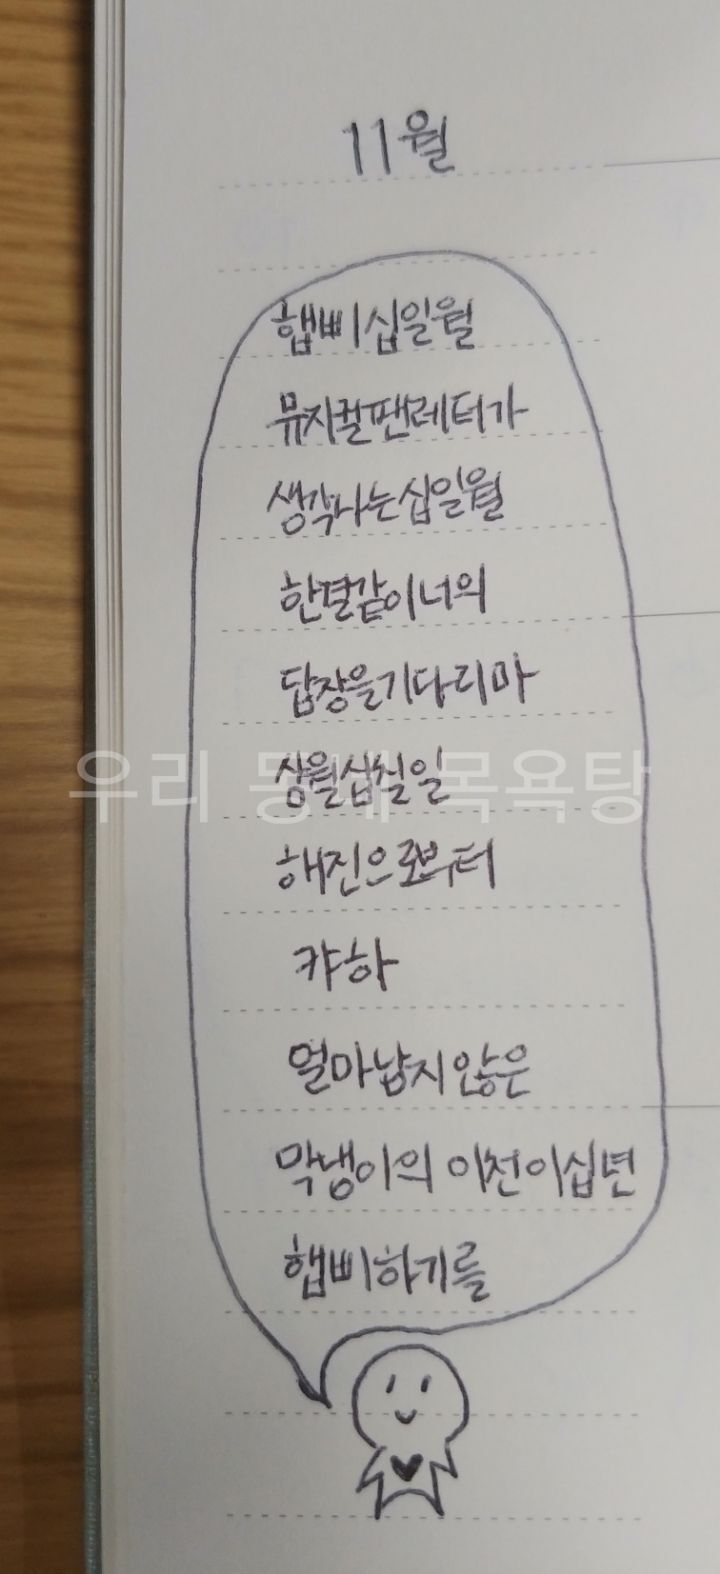 11월
햅삐십일월
뮤지컬팬레터가
생각나는십일월
한결같이너의
답장을기다리마
삼월삽칠일
우리 동네 목욕탕
해진으로부터
캬하
얼마냠지않은
막냉이의 이천이십년
햅삐하기를